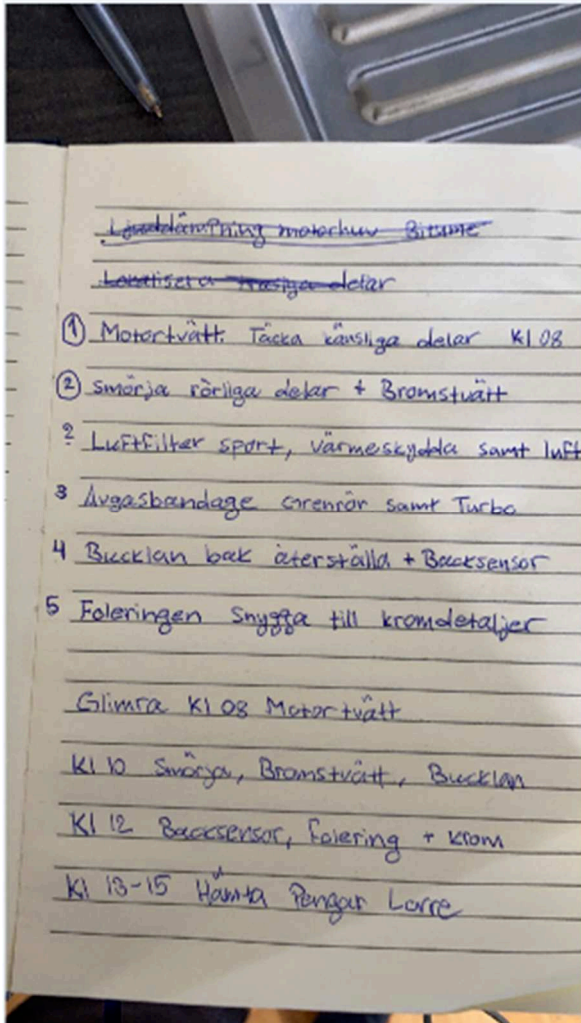 Ljuddämpning motorhuv Bitume
Lokalisera trasiga delar
① Motortvätt. Täcka känsliga delar Kl 08
② Smörja rörliga delar + Bromstvätt
2 Luftfilter sport, värmeskydda samt luft
3 Avgasbandage Grenrör samt Turbo
4 Bucklan bak återställa + Backsensor
5 Foleringen Snygga till kromdetaljer
Glimra Kl 08 Motortvätt
Kl 10 Smörja, Bromstvätt, Bucklan
Kl 12 Backsensor, Folering + Krom
Kl 13-15 Hämta Pengar Lorre